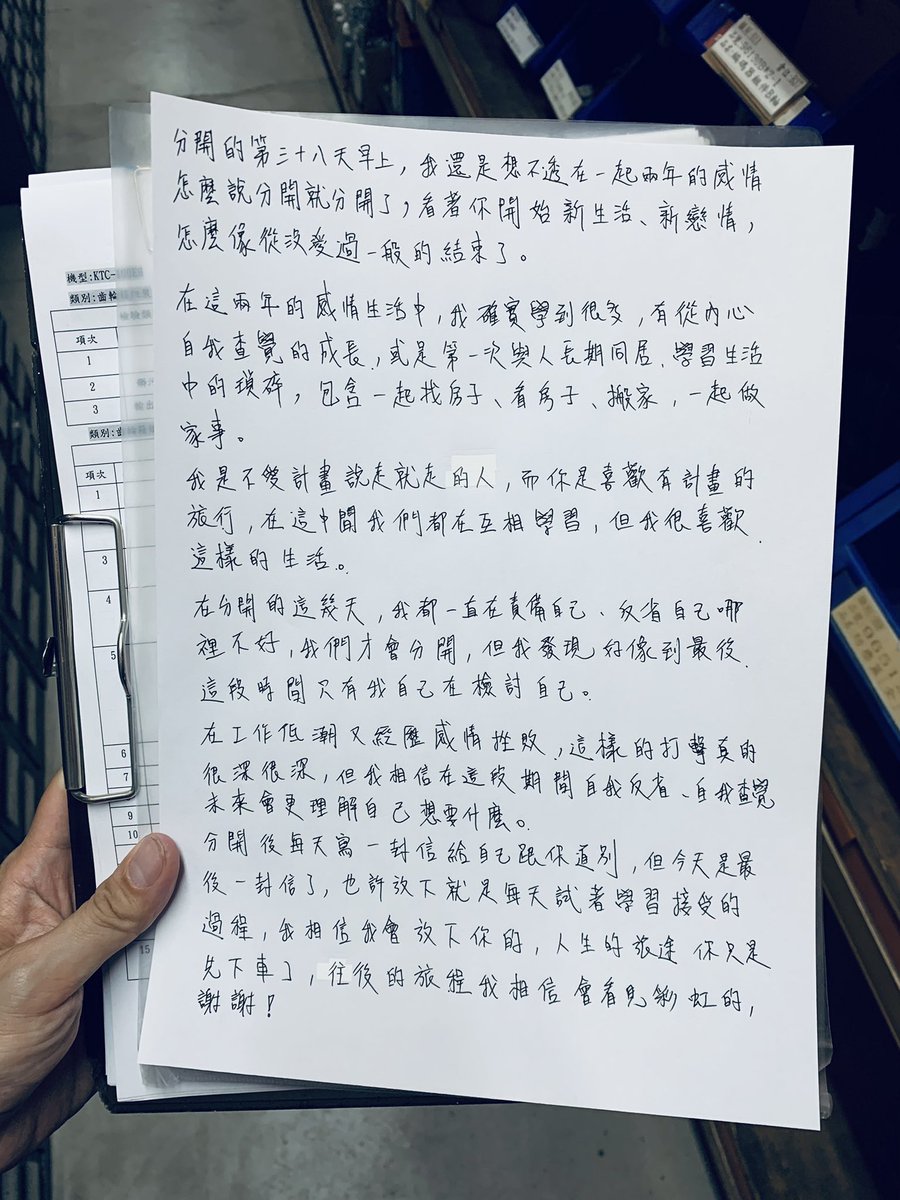 分開的第三十八天早上，我還是想不透在一起兩年的感情
怎麼說分開就分開了，看著你開始新生活、新戀情，
怎麼像從沒愛過一般的結束了。
在這兩年的感情生活中，我確實學到很多，有從內心
自我查覺的成長，或是第一次與人長期同居、學習生活
中的瑣碎，包含一起找房子、看房子、搬家，一起做
家事。
我是不愛計畫說走就走的人，而你是喜歡有計畫的
旅行，在這中間我們都在互相學習，但我很喜歡
這樣的生活。
在分開的這幾天，我都一直在責備自己、反省自己哪
裡不好，我們才會分開，但我發現好像到最後
這段時間只有我自己在檢討自己。
在工作低潮又經歷感情挫敗，這樣的打擊真的
很深很深，但我相信在這段期間自我反省、自我查覺
未來會更理解自己想要什麼。
分開後每天寫一封信給自己跟你道別，但今天是最
後一封信了，也許放下就是每天試著學習接受的
過程，我相信我會放下你的，人生的旅途你只是
先下車了，往後的旅程我相信會看見彩虹的，
謝謝！
機型:KTC-
類別:齒輪
項次
1
2
3
類別:齒
項次
1
3
4
5
6
7
9
10
15